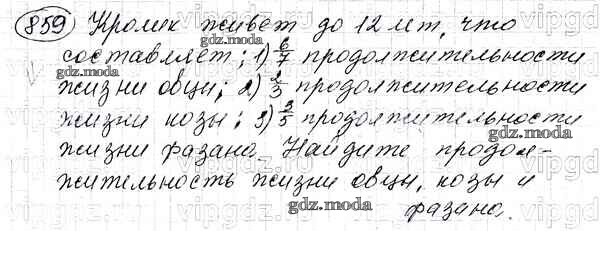 859 Кролик живёт до 12 лет, что
составляет: 1) 6/7 продолжительности
жизни овцы; 2) 2/3 продолжительности
жизни козы; 3) 3/5 продолжительности
жизни фазана. Найдите продол-
жительность жизни овцы, козы и
фазана.
gdz.moda
gdz.moda
gdz.moda
gdz.moda
gdz.moda
gdz.moda